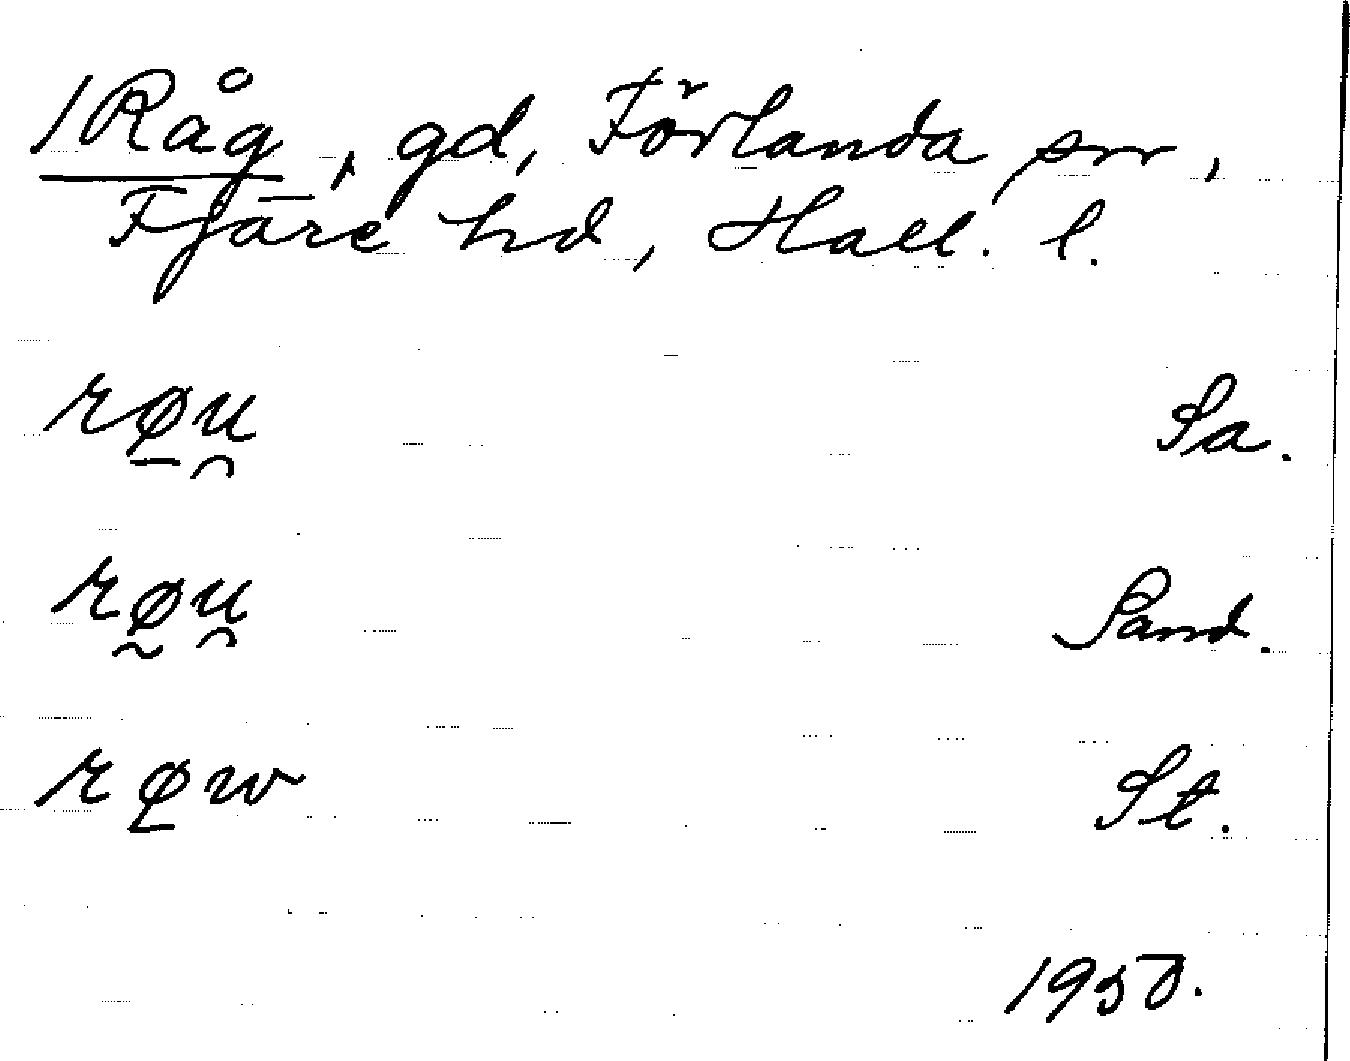 /Råg, gd, Förlanda sn,
Fjäre hd, Hall. l.
rø̱u̯ Sa.
rø̰u̯ Sand.
rø̱w St.
1950.